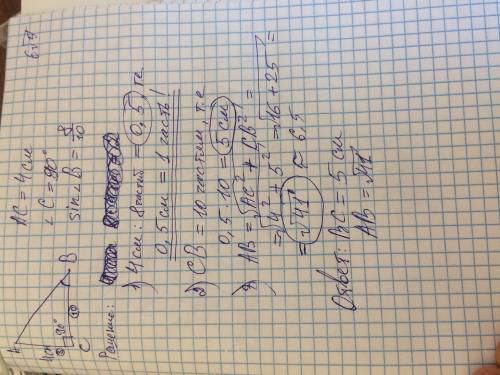 A
B
C
4см
90°
10
AC = 4 см
∠C = 90°
sin∠B = 8/10
Решение:
1) 4 см : 8 частей = 0,5, т.е.
0,5 см = 1 часть!
2) CB = 10 частям, т.е
0,5 · 10 = 5 см
3) AB = √AC² + CB² =
= √4² + 5² = √16 + 25 =
= √41 ≈ 6,5
Ответ: BC = 5 см
AB = √41